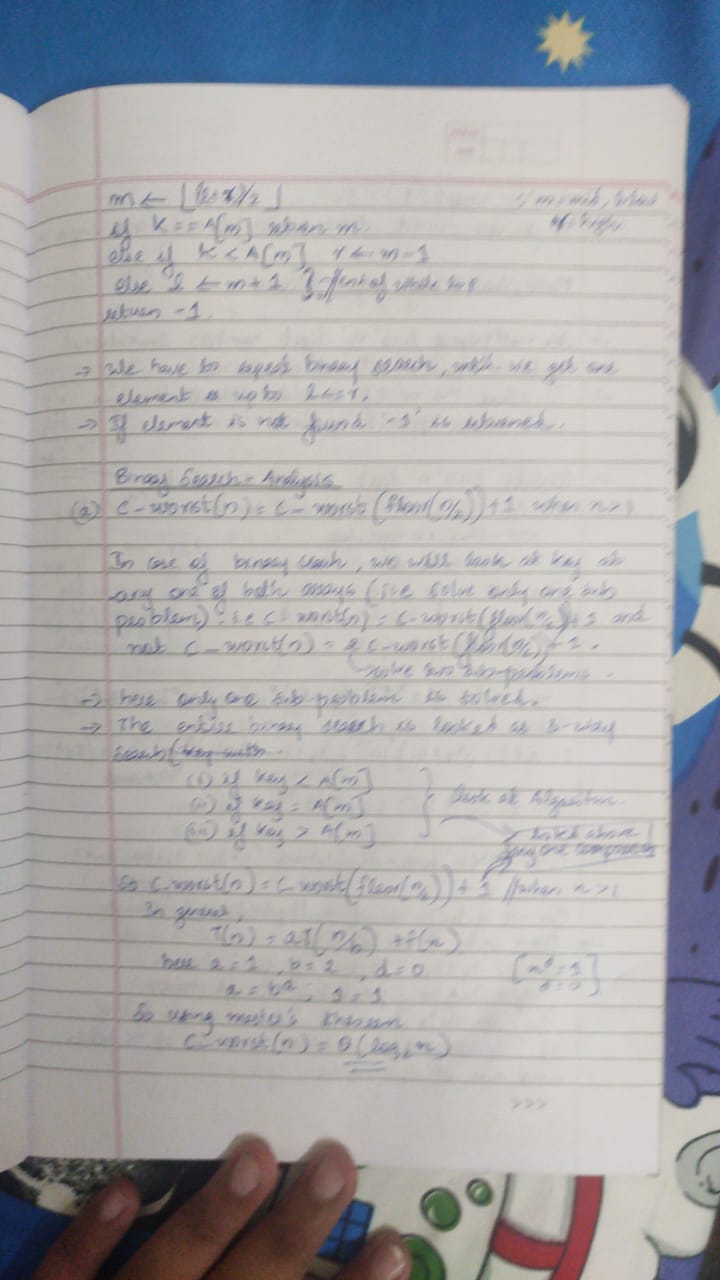 m ← ⌊(l+r)/2⌋ // m = mid,
if K == A[m] return m.
else if K < A[m] r ← m-1
else l ← m+1 } // end of while loop
return -1.
→ We have to repeat binary search, until we get one
element or upto l<=r.
→ If element is not found '-1' is returned.
Binary Search - Analysis
(a) C-worst(n) = C-worst(floor(n/2))+1 when n>1
In case of binary search, we will look at key at
any one of both arrays (i.e solve only one sub
problem). i.e C-worst(n) = C-worst(floor(n/2))+1 and
not C-worst(n) = 2 C-worst(floor(n/2))+1.
solve two sub-problems.
→ here only one sub-problem is solved.
→ The entire binary search is looked as 3-way
search (key with
(i) if key < A[m]
(ii) if key = A[m] } look at Algorithm.
(iii) if key > A[m]
listed above /
any one comparison
So C-worst(n) = C-worst(floor(n/2)) + 1 // when n>1
In general,
T(n) = aT(n/b) + f(n)
here a=1, b=2, d=0 [n^d = 1
a = b^d, 1=1 d=0]
So using master's theorem
C-worst(n) = θ(log₂n)
>>>